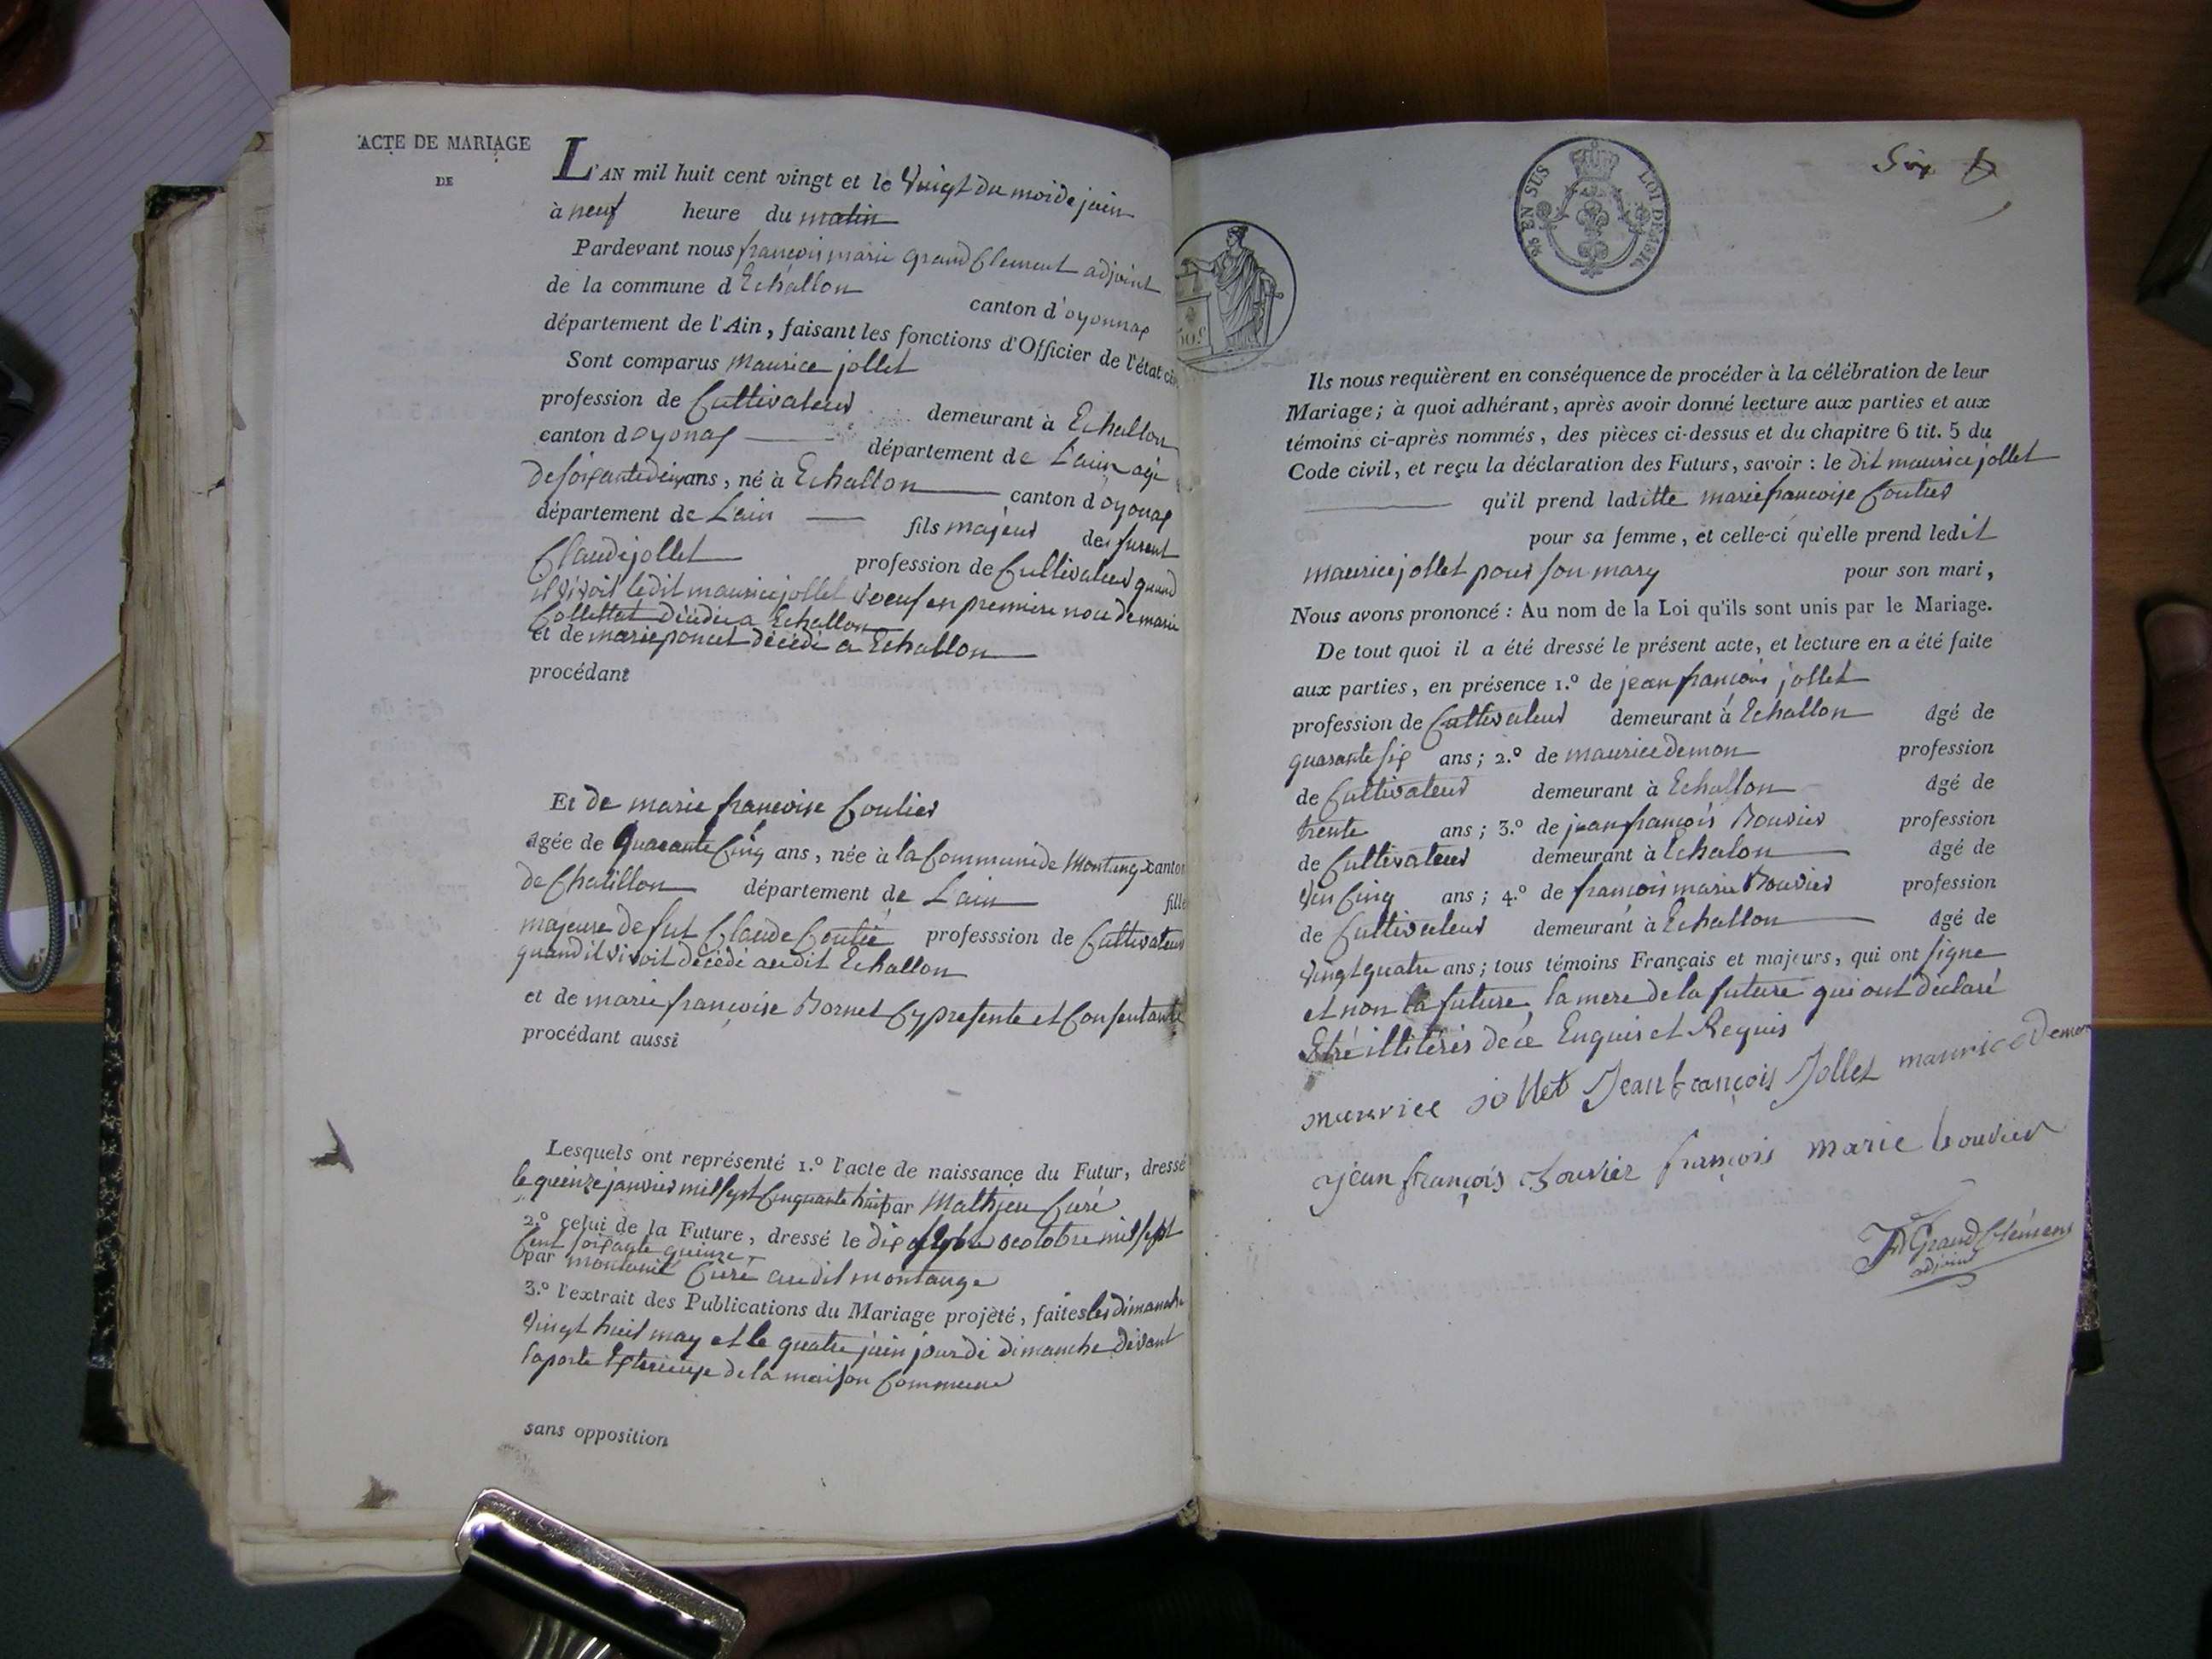 ACTE DE MARIAGE
DE
L'AN mil huit cent vingt et le Vingt du moi de juin
à neuf heure du matin
Pardevant nous françois marie grand Clement adjoint
de la commune d Echallon canton d'oyonnax
département de l'Ain, faisant les fonctions d'Officier de l'état ci
Sont comparus Maurice jollet
profession de Cultivateur demeurant à Echallon
canton d oyonax département de L'ain agé
de soixante deux ans, né à Echallon canton d oyonax
département de L'ain fils majeur de furent
Claude jollet profession de Cultivateur quand
il vivoit ledit maurice jollet Veuf en premiere noce de marie
Collettet décédée a Echallon
et de marie poncet décédé a Echallon
procédant
Et de marie françoise Coutier
âgée de Quarante Cinq ans, née à la Commune de Montange canton
de Chatillon département de L'ain fille
majeure de fut Claude Coutié professsion de Cultivateur
quand il vivoit décédé audit Echallon
et de marie françoise Bornet Cy presente et Consentante
procédant aussi
Lesquels ont représenté 1.º l'acte de naissance du Futur, dressé
le quinze janvier mil sept Cinquante huit par Mathieu Curé
2.º celui de la Future, dressé le dix octobre mil sept
Cent soixante quinze
par Curé audit montange
3.º l'extrait des Publications du Mariage projèté, faites les dimanche
Vingt huit may et le quatre juin jour de dimanche devant
la porte Exterieuse de la maison Commune
sans opposition
Six
EN SUS LOI DE 1816
50.c
Ils nous requièrent en conséquence de procéder à la célébration de leur
Mariage; à quoi adhérant, après avoir donné lecture aux parties et aux
témoins ci-après nommés, des pièces ci-dessus et du chapitre 6 tit. 5 du
Code civil, et reçu la déclaration des Futurs, savoir: le dit maurice jollet
qu'il prend laditte marie françoise Coutier
pour sa femme, et celle-ci qu'elle prend ledit
maurice jollet pour son mary pour son mari,
Nous avons prononcé: Au nom de la Loi qu'ils sont unis par le Mariage.
De tout quoi il a été dressé le présent acte, et lecture en a été faite
aux parties, en présence 1.º de jean françois jollet
profession de Cultivateur demeurant à Echallon âgé de
quarante six ans; 2.º de maurice demon profession
de Cultivateur demeurant à Echallon âgé de
trente ans; 3.º de jean françois Bouvier profession
de Cultivateur demeurant à Echalon âgé de
Cinq ans; 4.º de françois marie Bouvier profession
de Cultivateur demeurant à Echallon âgé de
vingt quatre ans; tous témoins Français et majeurs, qui ont signe
et non la future, la mere de la future qui ont déclaré
Etre illitérés de ce Enquis et Requis
maurice jollet Jean François Jollet maurice Demon
jean françois bouvier françois marie bouvier
Grand Clément
adjoint